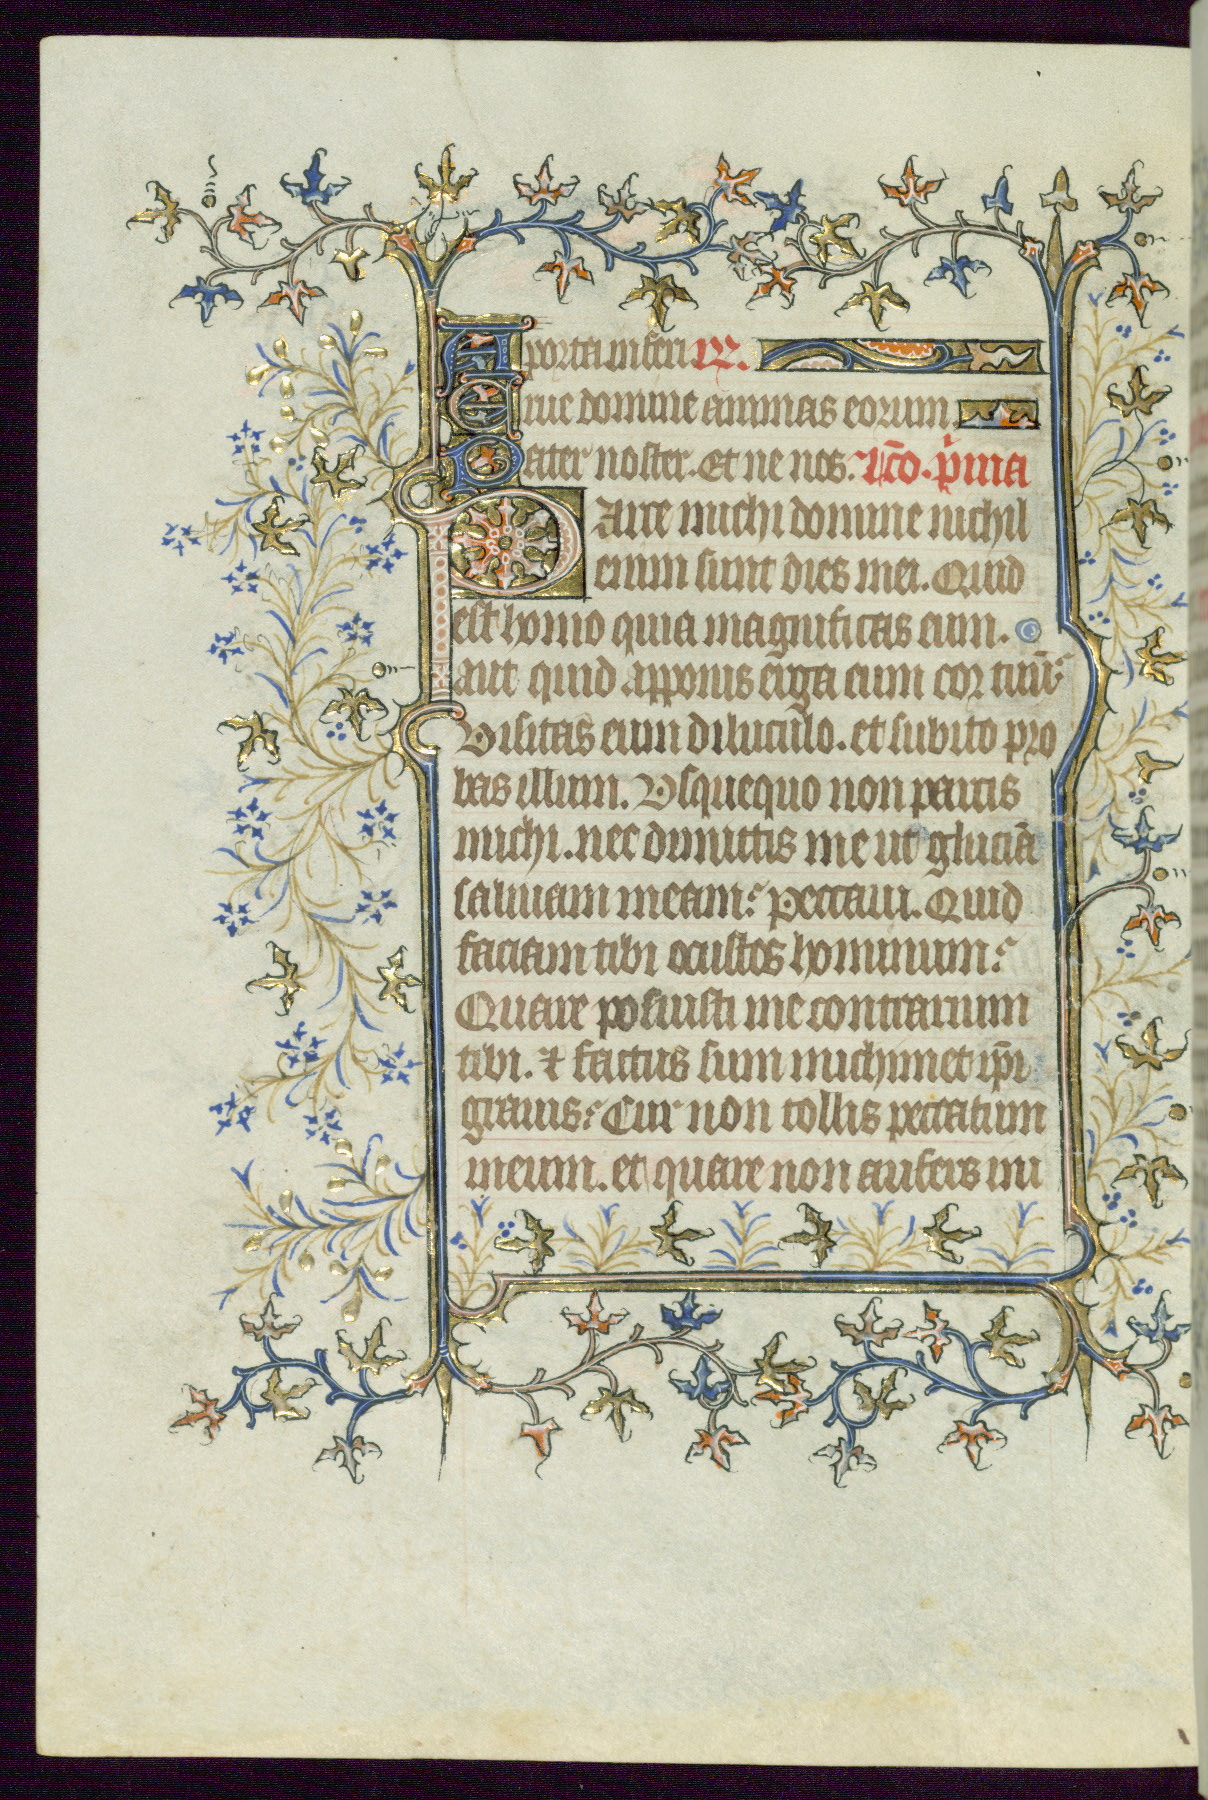 A porta inferi R.
Erue domine animas eorum.
Pater noster. Et ne nos. lc̄o. p̄ma
Parce michi domine nichil
enim sunt dies mei. Quid
est homo quia magnificas eum.
aut quid apponis erga eum cor tuū:
Visitas eum diluculo. et subito pro
bas illum. Vsquequo non parcis
michi. nec dimittis me ut gluciā
saliuam meam: peccaui. Quid
faciam tibi o custos hominum:
Quare posuisti me contrarium
tibi. ⁊ factus sum michimet ip̄i
grauis: Cur non tollis peccatum
meum. et quare non aufers ini